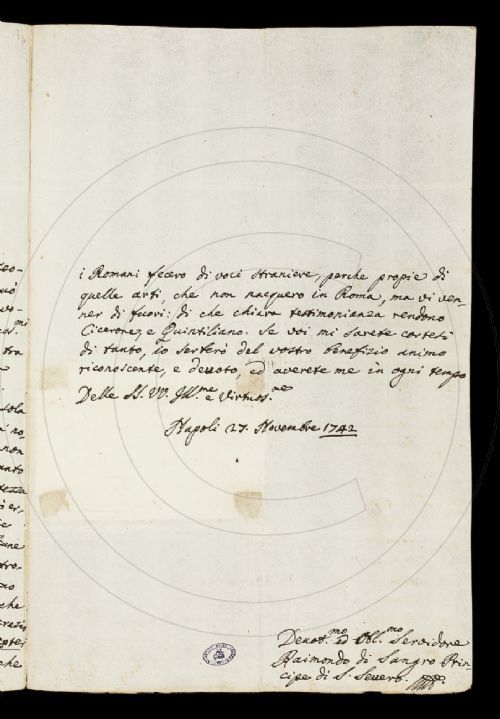 i Romani fecero di voci straniere, perche propie di
quelle arti, che non nacquero in Roma, ma vi ven-
ner di fuori: di che chiara testimonianza rendono
Cicerone, e Quintiliano. Se voi mi sarete cortesi
di tanto, io serberò del vostro benefizio animo
riconoscente, e devoto, ed averete me in ogni tempo
Delle SS. VV. Ill.me e Virtuos.me
Napoli 27. Novembre 1742
Devot.mo ed Obl.mo Servidore
Raimondo di Sangro Prin-
cipe di S. Severo.